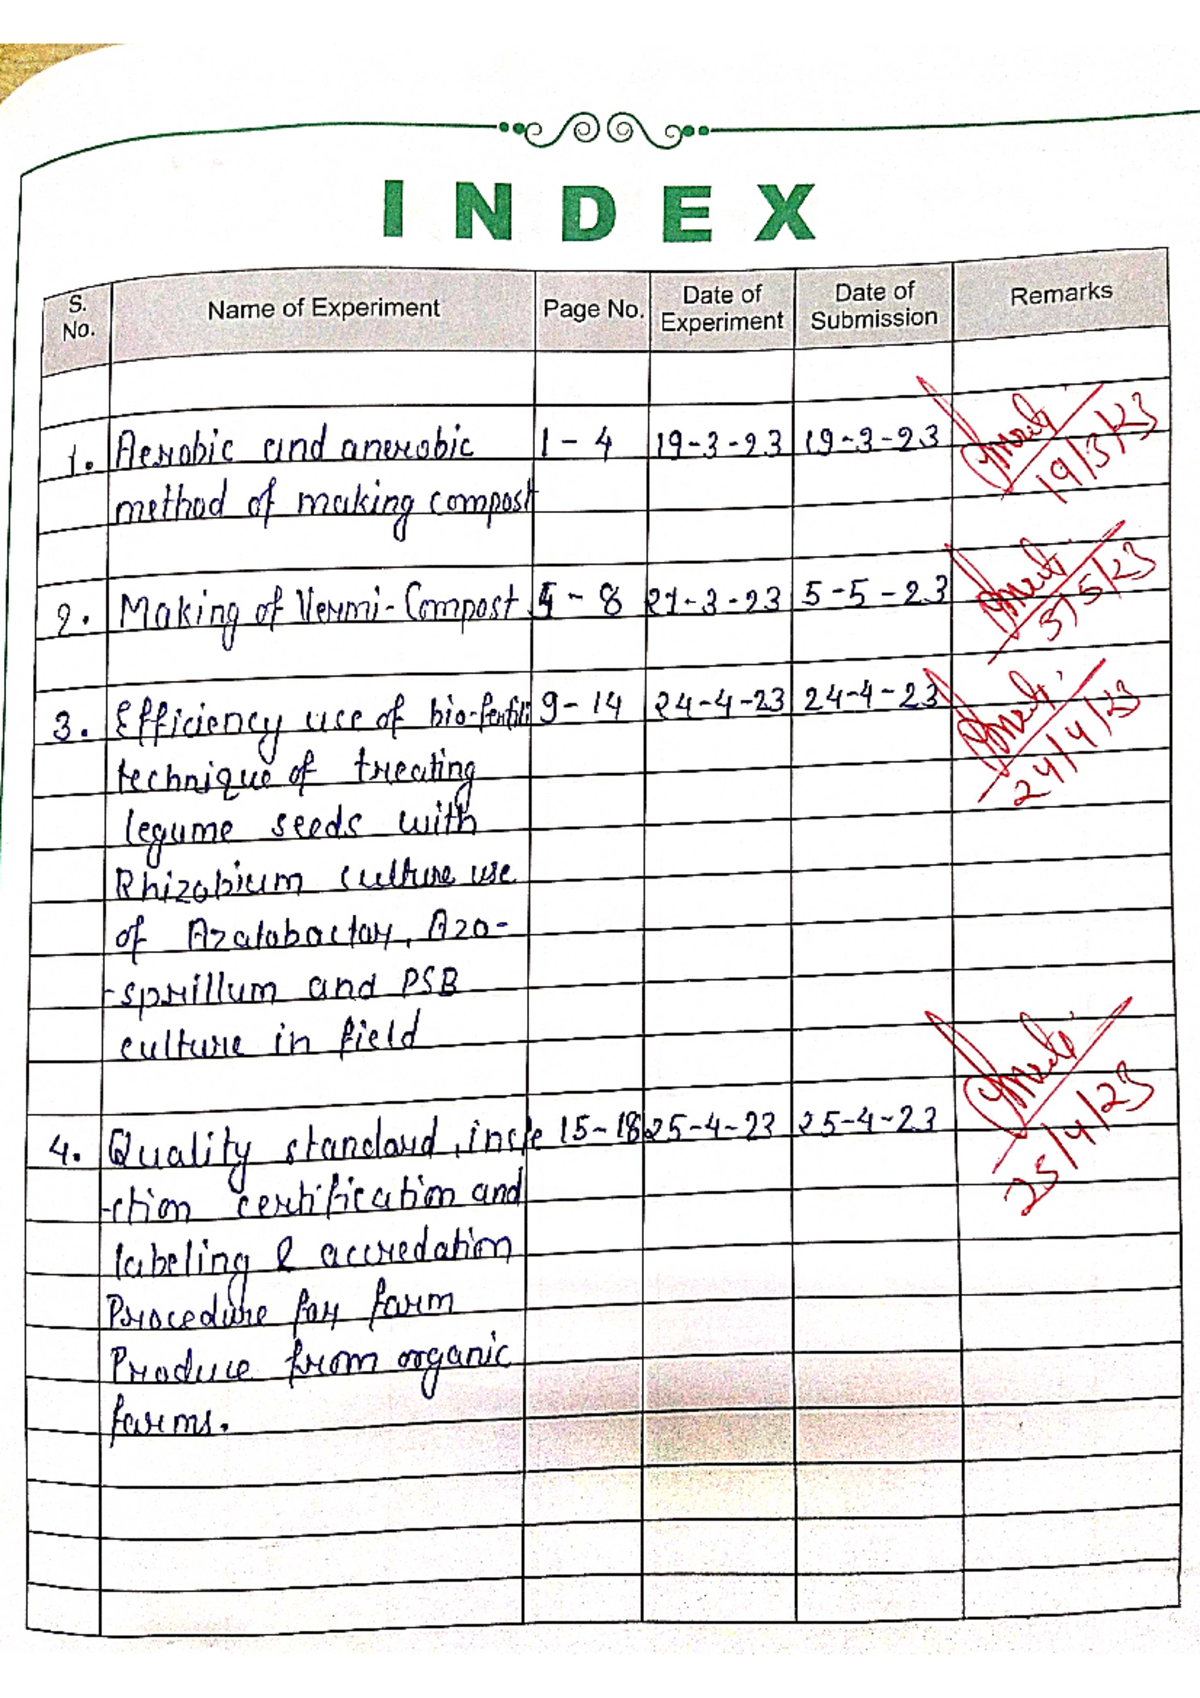 INDEX
S. No. Name of Experiment Page No. Date of Experiment Date of Submission Remarks
1. Aerobic and anerobic 1 - 4 19-3-23 19-3-23
19/3/23
method of making compost
2. Making of Vermi-Compost 5 - 8 21-3-23 5-5-23
5/5/23
3. Efficiency use of bio-fertili 9-14 24-4-23 24-4-23
24/4/23
technique of treating
legume seeds with
Rhizobium culture use
of Azatobactor, Azo-
-sprillum and PSB
culture in field
4. Quality standard, inspe 15-18 25-4-23 25-4-23
25/4/23
-ction certification and
labeling & accredation
Procedure for farm
Produce from organic
farms.